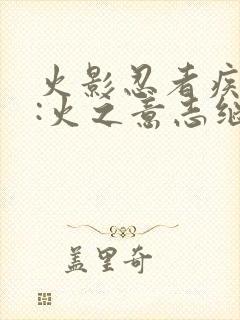 火影忍者疾
:火之意志继
盖里奇